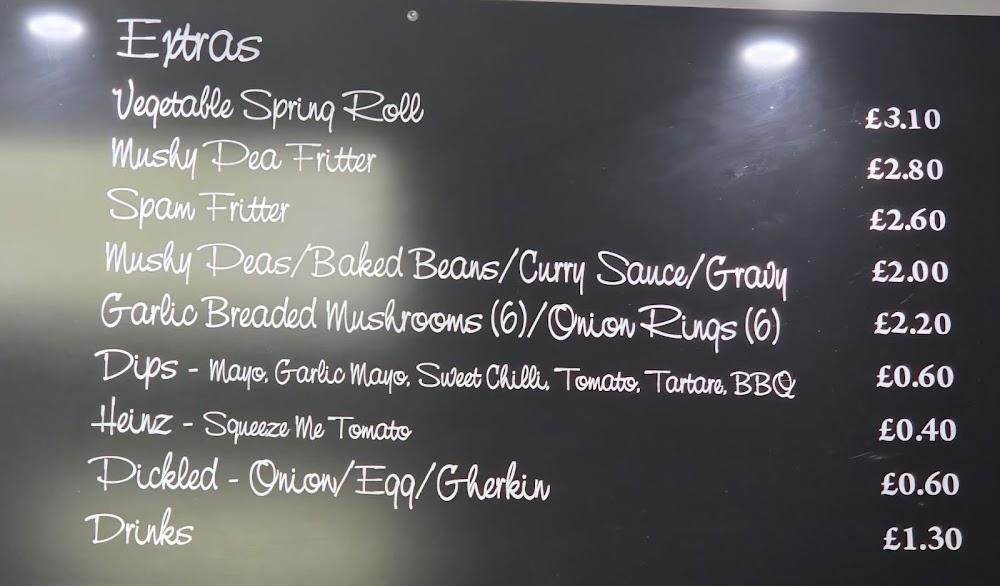 Extras
Vegetable Spring Roll £3.10
Mushy Pea Fritter £2.80
Spam Fritter £2.60
Mushy Peas/Baked Beans/Curry Sauce/Gravy £2.00
Garlic Breaded Mushrooms (6)/Onion Rings (6) £2.20
Dips - Mayo, Garlic Mayo, Sweet Chilli, Tomato, Tartare, BBQ £0.60
Heinz - Squeeze Me Tomato £0.40
Pickled - Onion/Egg/Gherkin £0.60
Drinks £1.30